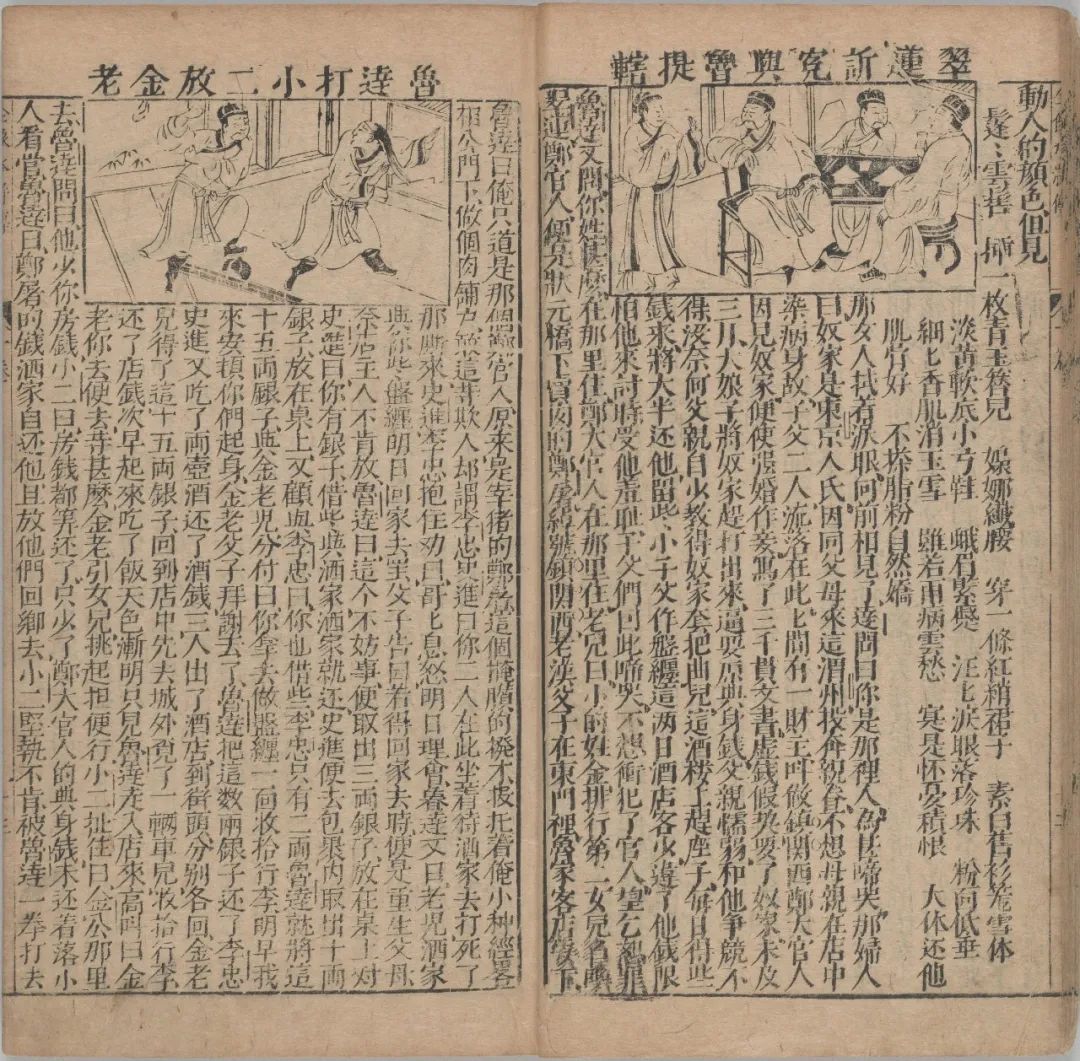 翠蓮訴冤與魯提轄
動人的顏色但見
鬔〻雲髻 插一枚青玉簪兒 嬝娜纖腰 穿一條紅綃裙子 素白舊衫籠雪体
淡黃軟底小弓鞋 蛾眉緊蹙 汪〻淚眼落珍珠 粉面低垂
細〻香肌消玉雪 雖若雨病雲愁 寔是怀憂積恨 大体还他
肌骨好 不搽脂粉自然嬌
那女人拭着淚眼向前相見了達問曰你是那裡人為甚啼哭那婦人
曰奴家是東京人氏因同父母來這渭州投奔親眷不想母親在店中
染病身故子父二人流落在此〻間有一財主叫做鎮関西鄭大官人
因見奴家便使强婚作妾寫了三千貫文書虛錢假契要了奴家未及
三月大娘子將奴家赶打出來逼要原典身錢父親懦弱和他争競不
得沒奈何父親自少教得奴家套把曲兒這酒楼上趕座子每日得些
錢來將大半还他留此小子父作盤纏這兩日酒店客少違了他錢限
怕他來討時受他羞耻子父們因此啼哭不想衝犯了官人望乞恕罪
魯達又問你姓甚麼在那里住鄭大官人在那里住老兒曰小的姓金排行第一女兒名喚
翠蓮鄭官人便是狀元橋下賣肉的鄭屠綽號鎮関西老漢父子在東門裡魯家客店安下
魯達打小二放金老
魯達曰俺只道是那個鄭官人原來是宰猪的鄭屠這個腌臢的潑才投托着俺小种經畧
相公門下做個肉舖戶這等欺人却謂李忠史進曰你二人在此坐着待洒家去打死了
那厮來史進李忠抱住劝曰哥〻息怒明日理會魯達又曰老兒洒家
與你些盤纏明日回家去罢父子告曰若得回家去時便是重生父母
奈店主人不肯放魯達曰這个不妨事便取出三両銀子放在桌上对
史進曰你有銀子借些與洒家洒家就还史進便去包裹內取出十両
銀子放在桌上又顧與李忠曰你也借些李忠只有二両魯達就將這
十五両銀子與金老兒分付曰你拿去做盤纏一面收拾行李明早我
來安頓你們起身金老父子拜謝去了魯達把這数兩銀子还了李忠
史進又吃了両壺酒还了酒錢三人出了酒店到街頭分別各回金老
兒得了這十五両銀子回到店中先去城外覓了一輛車兒收拾行李
还了店錢次早起來吃了飯天色漸明只見魯達走入店來高叫曰金
老你去便去等甚麽金老引女兒挑起担便行小二扯住曰金公那里
去魯達問曰他少你房錢小二曰房錢都筭还了只少了鄭大官人的典身錢未还着落小
人看管魯達曰鄭屠的錢洒家自还他且放他們回鄉去小二堅執不肯被魯達一拳打去